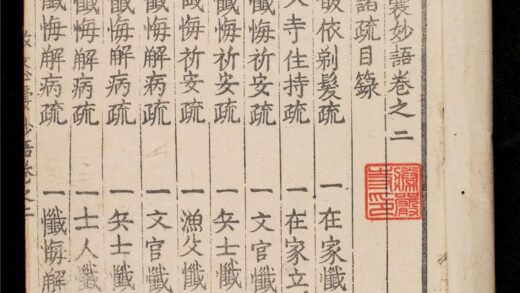 妙語卷之二
諸疏目錄
皈依剃髮疏 一在家懺
寺住持疏 一在家立
懺悔祈安疏 一文官懺
懺悔祈安疏 一兵士懺
懺悔祈安疏 一漁父懺
懺悔解病疏 一文官懺
懺悔解病疏 一兵士懺
懺悔解病疏 一士人懺
懺悔解病疏 一懺悔解
妙語卷之二